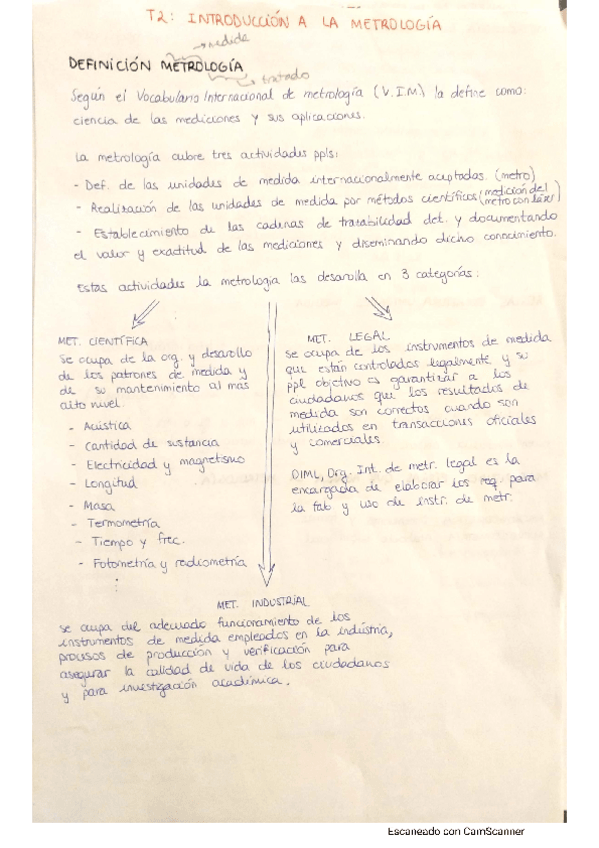 T2: INTRODUCCIÓN A LA METROLOGÍA
medida
DEFINICIÓN METROLOGÍA
tratado
Según el Vocabulario Internacional de metrología (V.I.M) la define como:
ciencia de las mediciones y sus aplicaciones.
La metrología cubre tres actividades ppls:
- Def. de las unidades de medida internacionalmente aceptadas. (metro)
- Realización de las unidades de medida por métodos científicos (medición del metro con láser)
- Establecimiento de las cadenas de trazabilidad det. y documentando
el valor y exactitud de las mediciones y diseminando dicho conocimiento.
Estas actividades la metrologia las desarolla en 3 categorías:
MET. CIENTÍFICA
se ocupa de la org. y desarollo
de los patrones de medida y
de su mantenimiento al más
alto nivel.
- Acústica
- Cantidad de sustancia
- Electricidad y magnetismo
- Longitud
- Masa
- Termometría
- Tiempo y frec.
- Fotometría y radiometría
⋮
MET. LEGAL
se ocupa de los instrumentos de medida
que están controlados legalmente y su
ppl objetivo es garantizar a los
ciudadanos que los resultados de
medida son correctos cuando son
utilizados en transacciones oficiales
y comerciales.
OIML, Org. Int. de metr. legal es la
encargada de elaborar los req. para
la fab y uso de instr. de metr.
MET. INDUSTRIAL
se ocupa del adecuado funcionamiento de los
instrumentos de medida empleados en la indústria,
procesos de producción y verificación para
asegurar la calidad de vida de los ciudadanos
y para investigación académica.
Escaneado con CamScanner